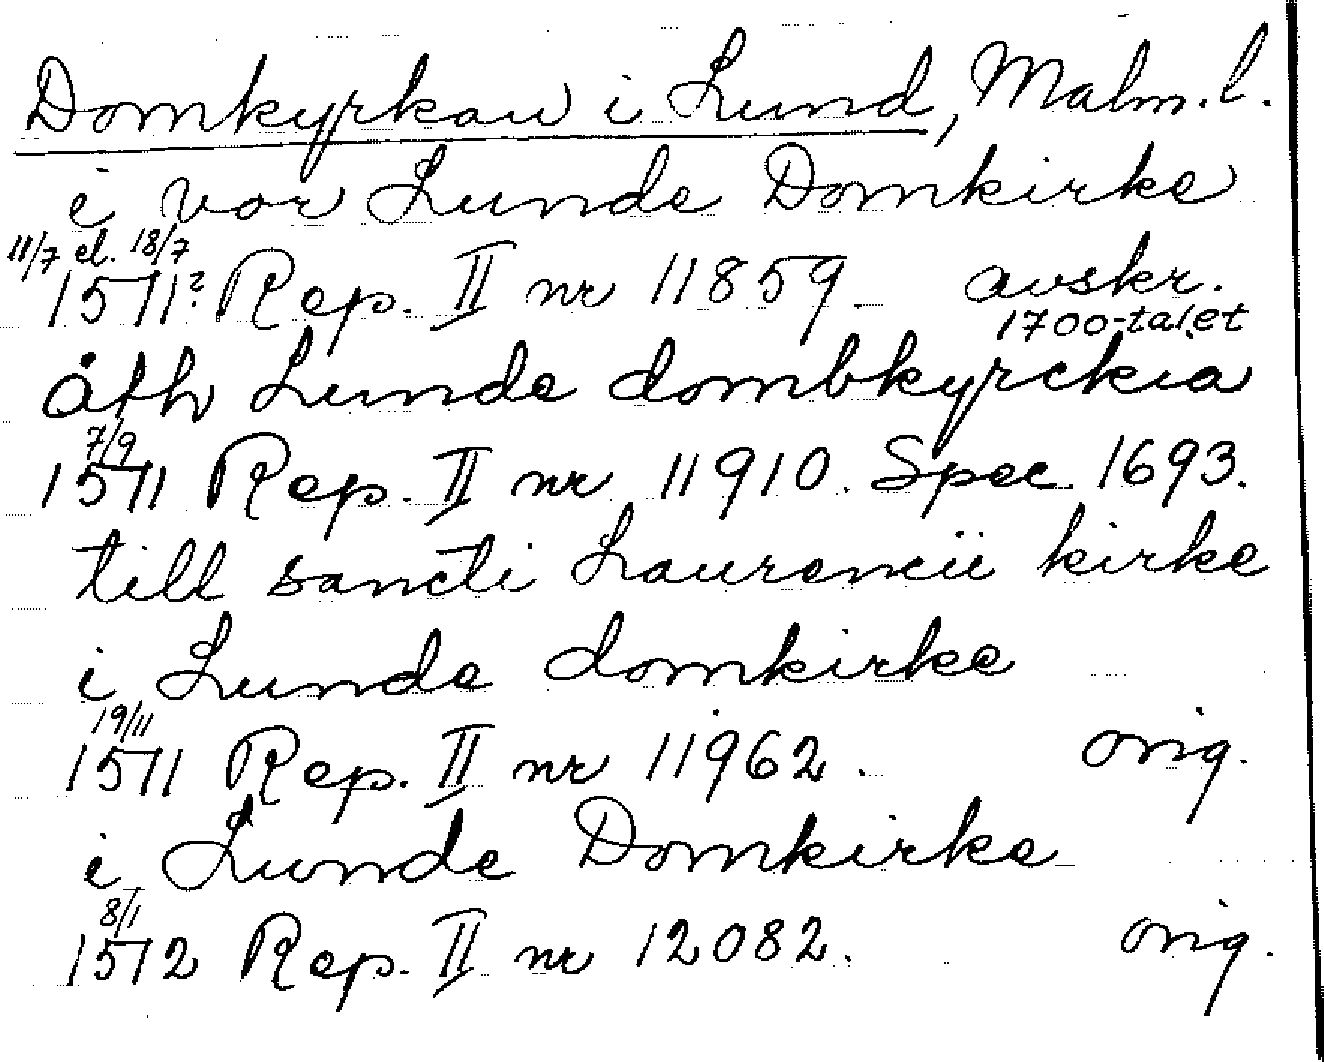 Domkyrkan i Lund, Malm. l.
i vor Lunde Domkirke
11/7 el. 18/7
1571? Rep. II nr 11859 avskr.
1700-talet
åth Lunde dombkyrckia
7/9
1571 Rep. II nr 11910. Spec 1693.
till sancti Laurencii kirke
i Lunde domkirke
19/11
1571 Rep. II nr 11962. orig.
i Lunde Domkirke
8/1
1572 Rep. II nr 12082. orig.